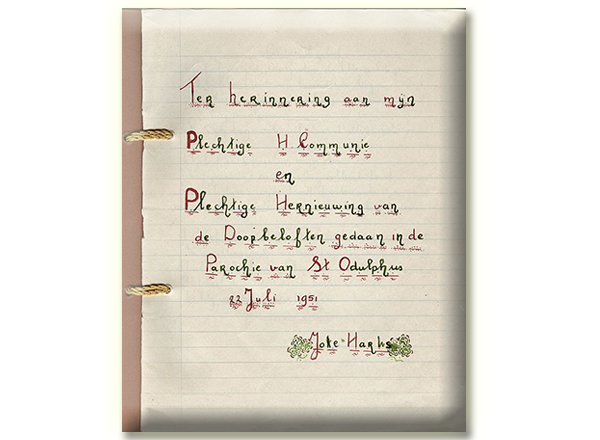 Ter herinnering aan mijn
Plechtige H Communie
en
Plechtige Hernieuwing van
de Doopbeloften gedaan in de
Parochie van St Odulphus
22 Juli 1951
Joke Harks